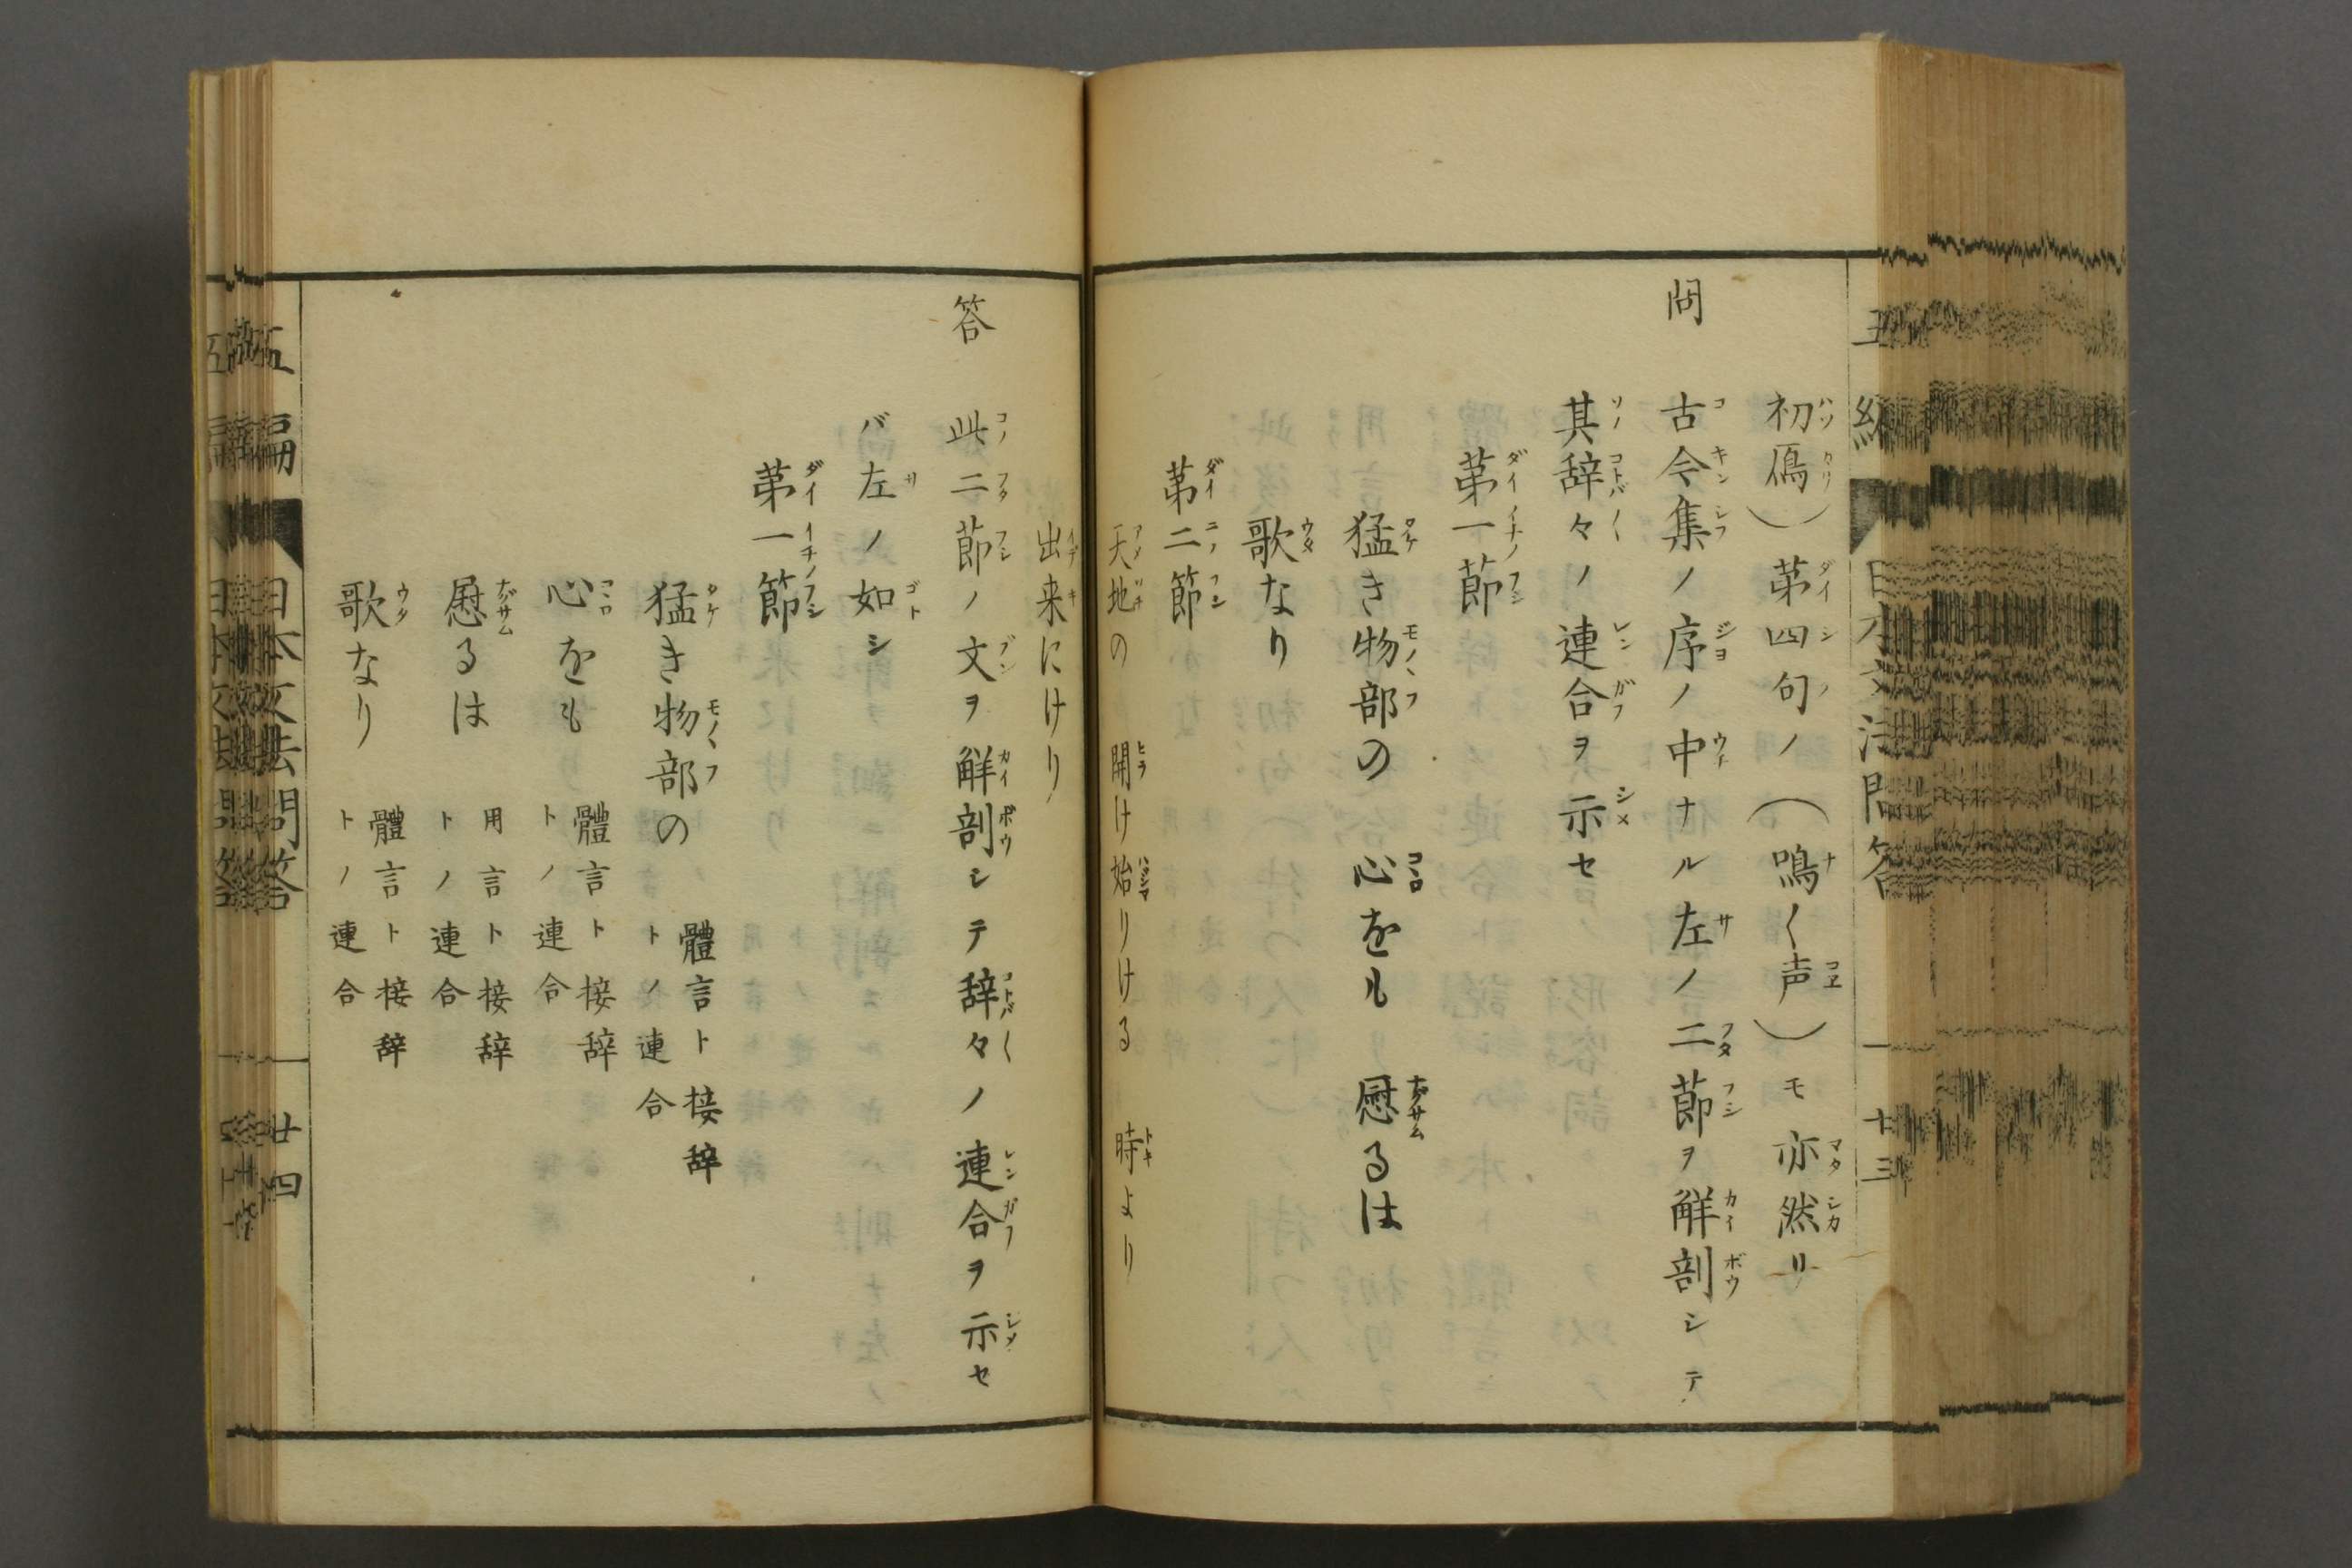 初鴈）第四句ノ（鳴く声）モ亦然リ
問　古今集ノ序ノ中ナル左ノ二節ヲ觧剖シテ
其辞々ノ連合ヲ示セ
第一節
猛き物部の　心をも　慰るは
歌なり
第二節
天地の　開け始りける　時より
出来にけり
答　此二節ノ文ヲ觧剖シテ辞々ノ連合ヲ示セ
バ左ノ如シ
第一節
猛き物部の　體言ト接辞
トノ連合
心をも　體言ト接辞
トノ連合
慰るは　用言ト接辞
トノ連合
歌なり　體言ト接辞
トノ連合
五編　日本文法問答　廿四